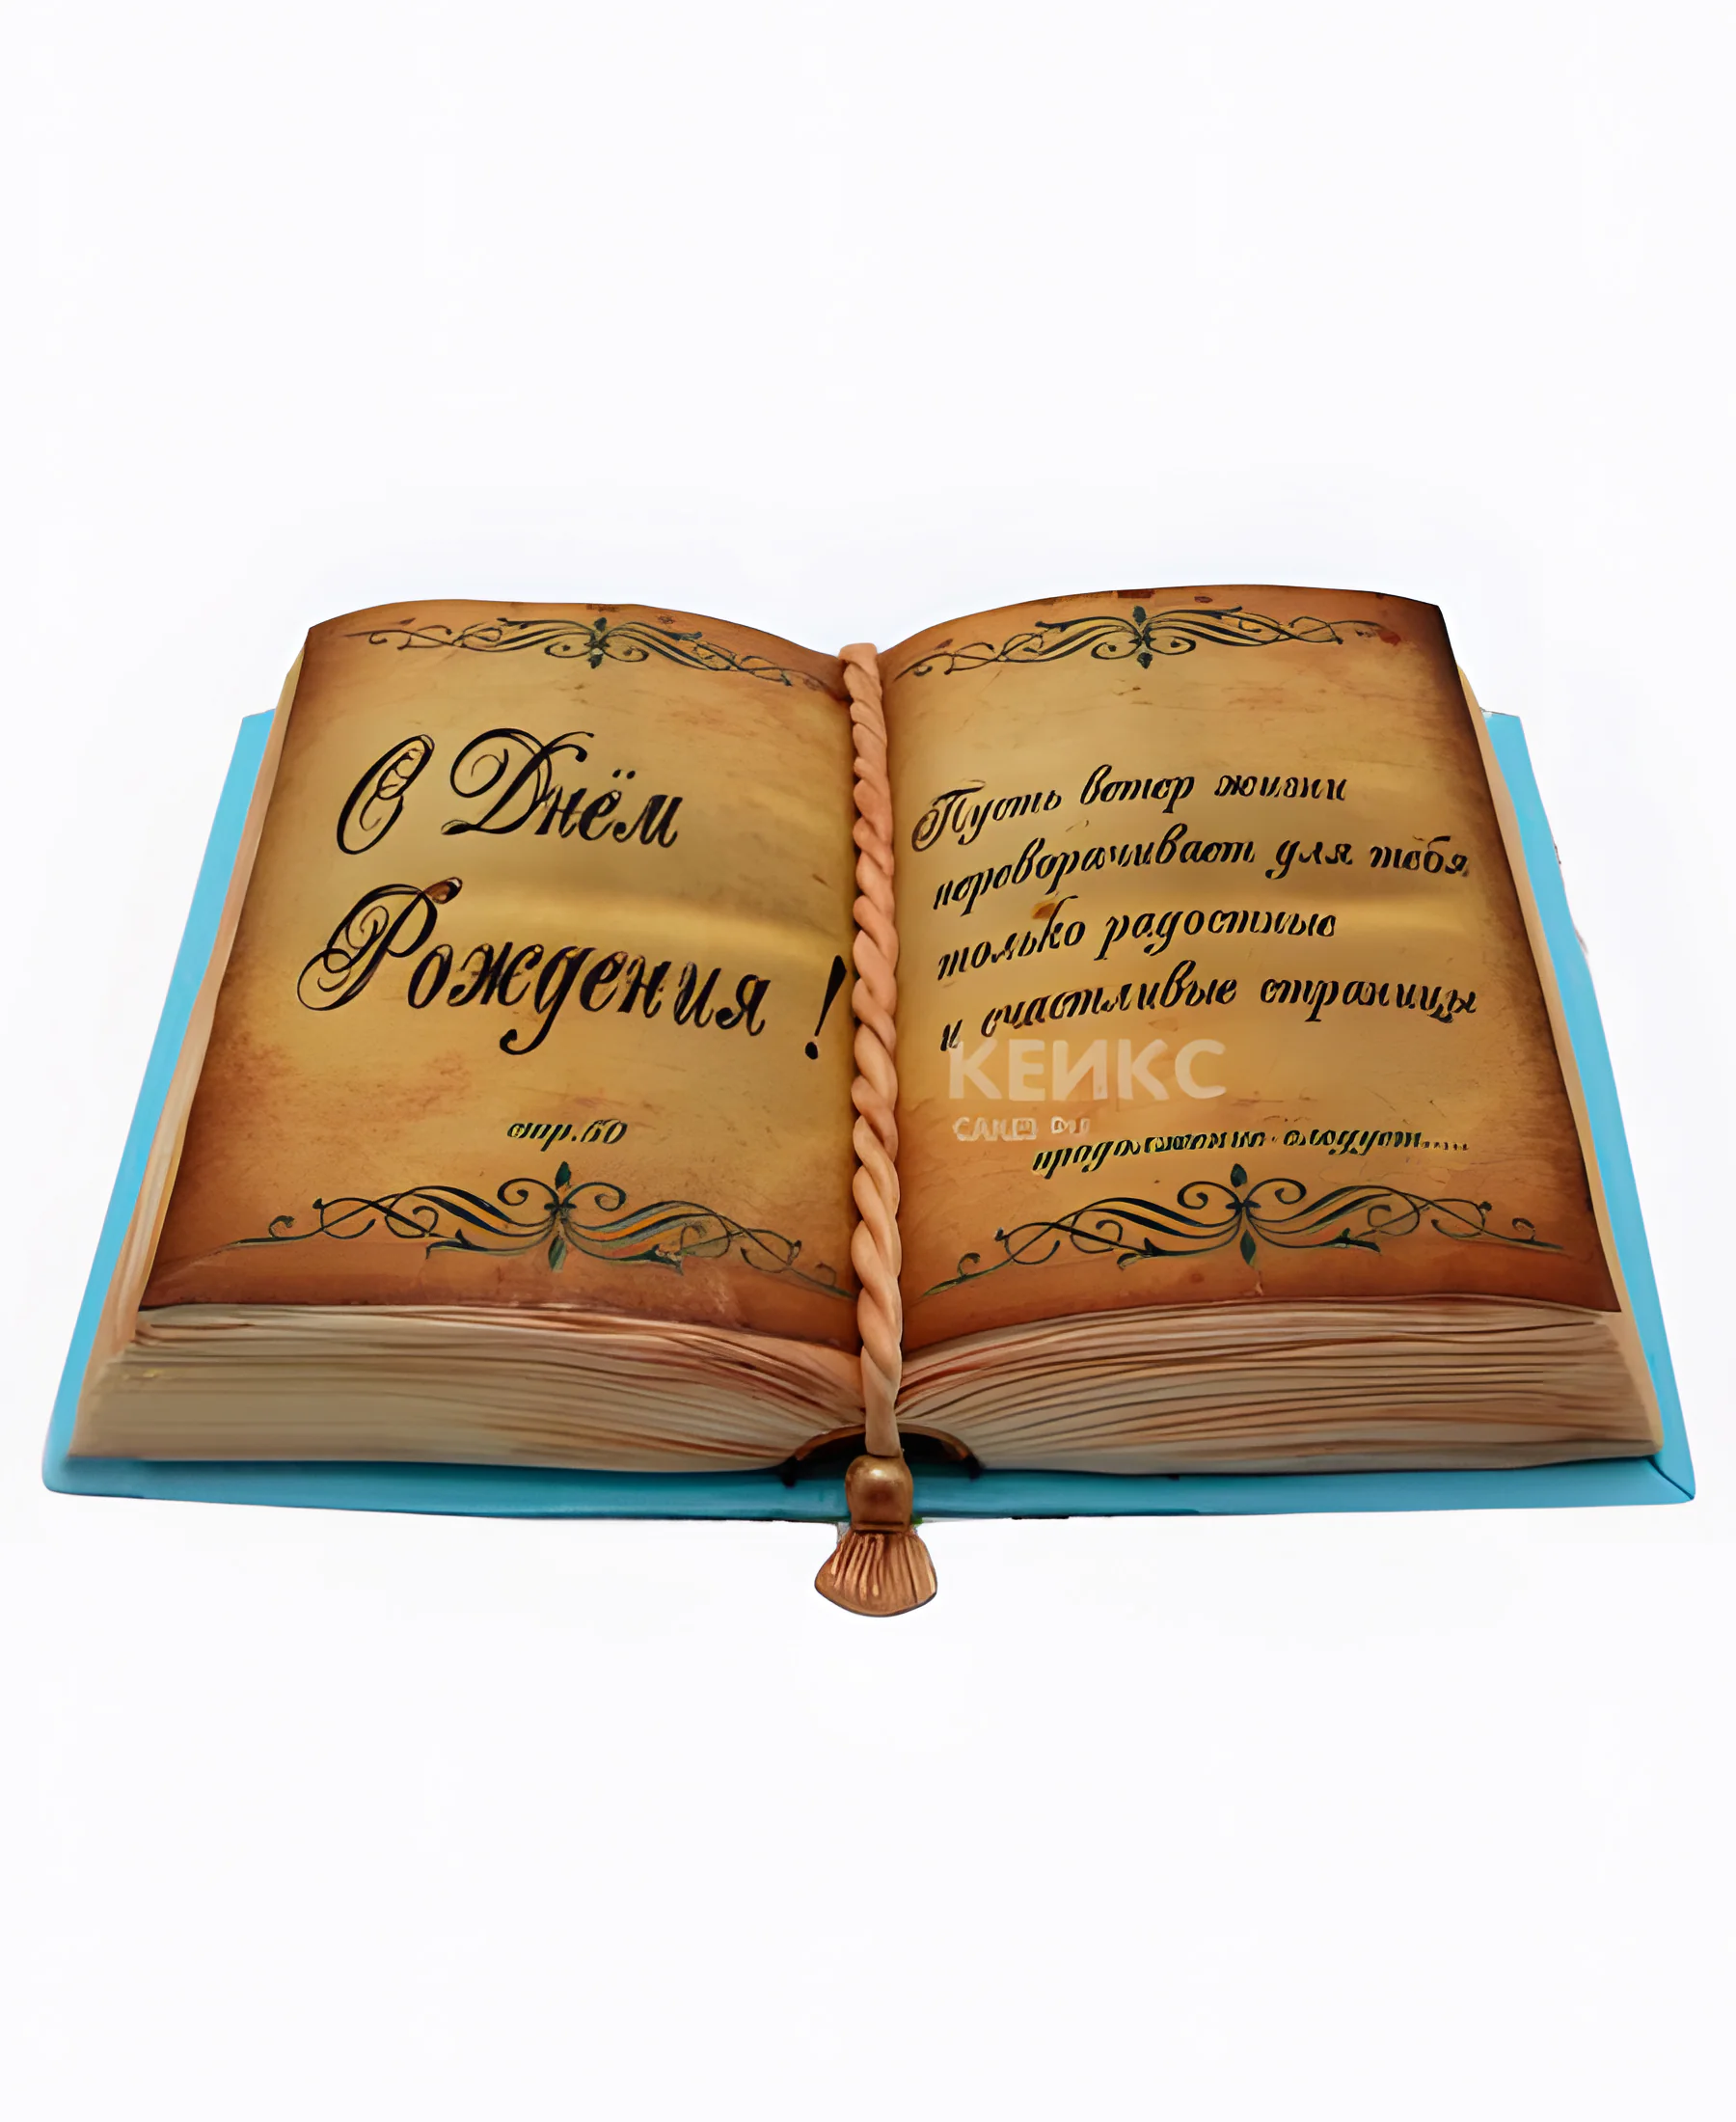 С Днём
Рождения !
стр.60
Пусть ветер жизни
переворачивает для тебя
только радостные
и счастливые страницы
КЕЙКС
продолжение следует.....